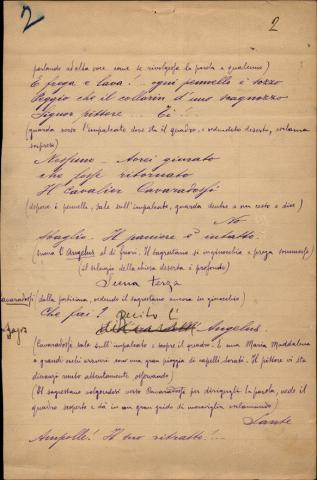 2
2
parlando ad alta voce come se rivolgesse la parola a qualcuno)
E frega e lava!... ogni pennello è sozzo
Peggio che il collarin d'uno scagnozzo
Signor pittore... Tò!...
(guarda verso l'impalcato dove sta il quadro, e vedendolo deserto, esclama
sorpreso)
Nessuno - Avrei giurato
che fosse ritornato
Il Cavalier Cavaradossi
(depone i pennelli, sale sull'impalcato, guarda dentro a un cesto e dice)
No
sbaglio. Il paniere è intatto.
(suona l'Angelus al di fuori. Il Sagrestano si inginocchia e prega sommesso)
(il silenzio della chiesa deserta è profondo)
Scena terza
Cavaradossi (dalla porticina, vedendo il sagrestano ancora in ginocchio)
Che fai?
Recito l'
Sagres
Angelus.
(Cavaradossi sale sull'impalcato e scopre il quadro. È una Maria Maddalena
a grandi occhi azzurri con una gran pioggia di capelli dorati. Il pittore vi sta
dinanzi muto attentamente osservando)
(Il sagrestano volgendosi verso Cavaradossi per dirigergli la parola, vede il
quadro scoperto e dà in un gran grido di meraviglia esclamando)
Sante
Ampolle! Il suo ritratto!...